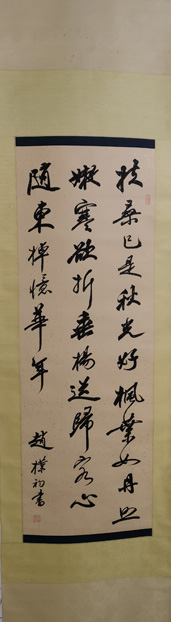 扶桑已是秋光好楓葉如丹照
嫩寒欲折垂楊送歸客心
隨東棹憶華年
趙樸初書